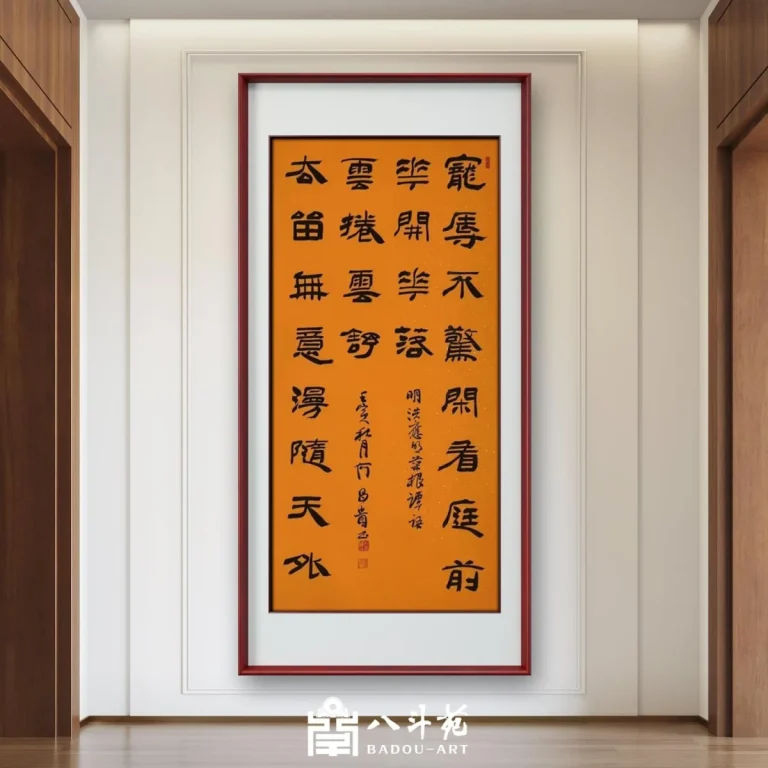 寵辱不驚閑看庭前
華開華落
明洪應明菜根譚語
雲捲雲舒
壬寅秋月何昌貴书
去留無意漫隨天外
八斗苑
BADOU-ART